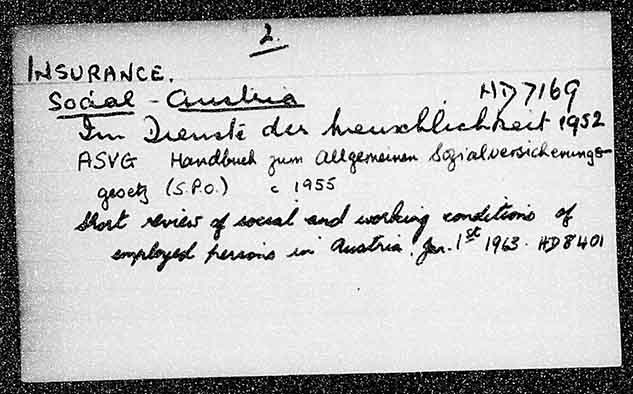 2.
INSURANCE.
Social - Austria HD7169
Im Dienste der Menschlichkeit 1952
ASVG Handbuch zum Allgemeinen Sozialversicherungs-
gesetz (S.P.O.) c 1955
Short review of social and working conditions of
employed persons in Austria. Jan. 1st 1963. HD8401